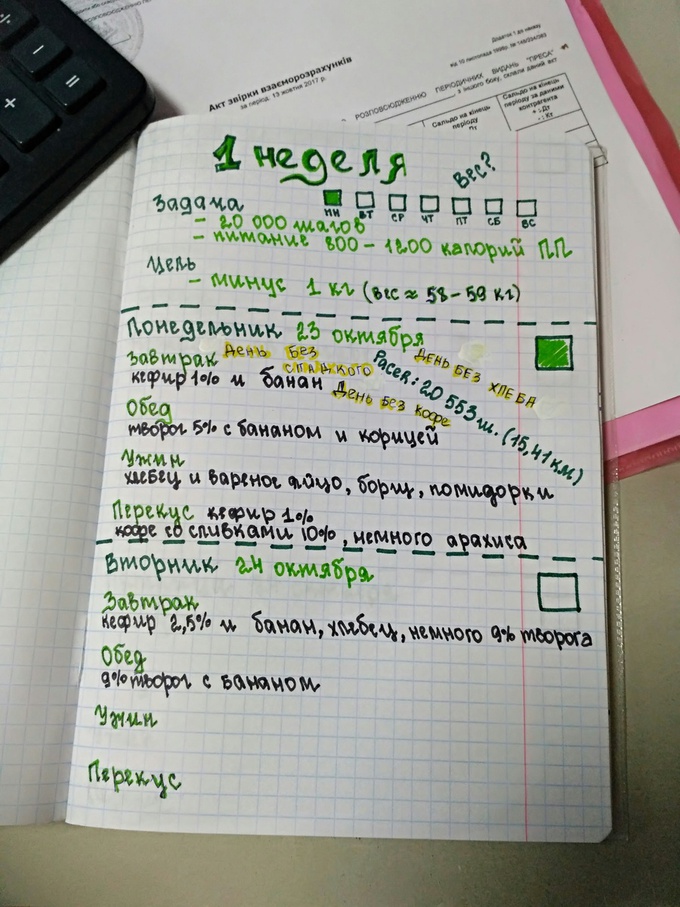 Додаток 1 до наказу
від 10 листопада 1998р. №
Акт звірки взаєморозрахунків
за період: 13 жовтня 2017 р.
РОЗПОВСЮДЖЕННЮ ПЕРІОДИЧНИХ ВИДАНЬ "ПРЕСА"
з іншого боку, склали даний акт
Сальдо на кінець періоду
Сальдо на кінець періоду за даними контрагента
+ : Дт
- : Кт
1 неделя
Вес?
Задача
ПН ВТ СР ЧТ ПТ СБ ВС
- 20 000 шагов
- питание 800-1200 калорий ПП
Цель
- минус 1 кг (вес ≈ 58-59 кг)
Понедельник 23 октября
Завтрак День без сладкого
День без хлеба
Pacer: 20 553 ш. (15,41 км)
кефир 1% и банан День без кофе
Обед
творог 5% с бананом и корицей
Ужин
хлебец и вареное яйцо, борщ, помидорки
Перекус кефир 1%
кофе со сливками 10%, немного арахиса
Вторник 24 октября
Завтрак
кефир 2,5% и банан, хлебец, немного 9% творога
Обед
9% творог с бананом
Ужин
Перекус